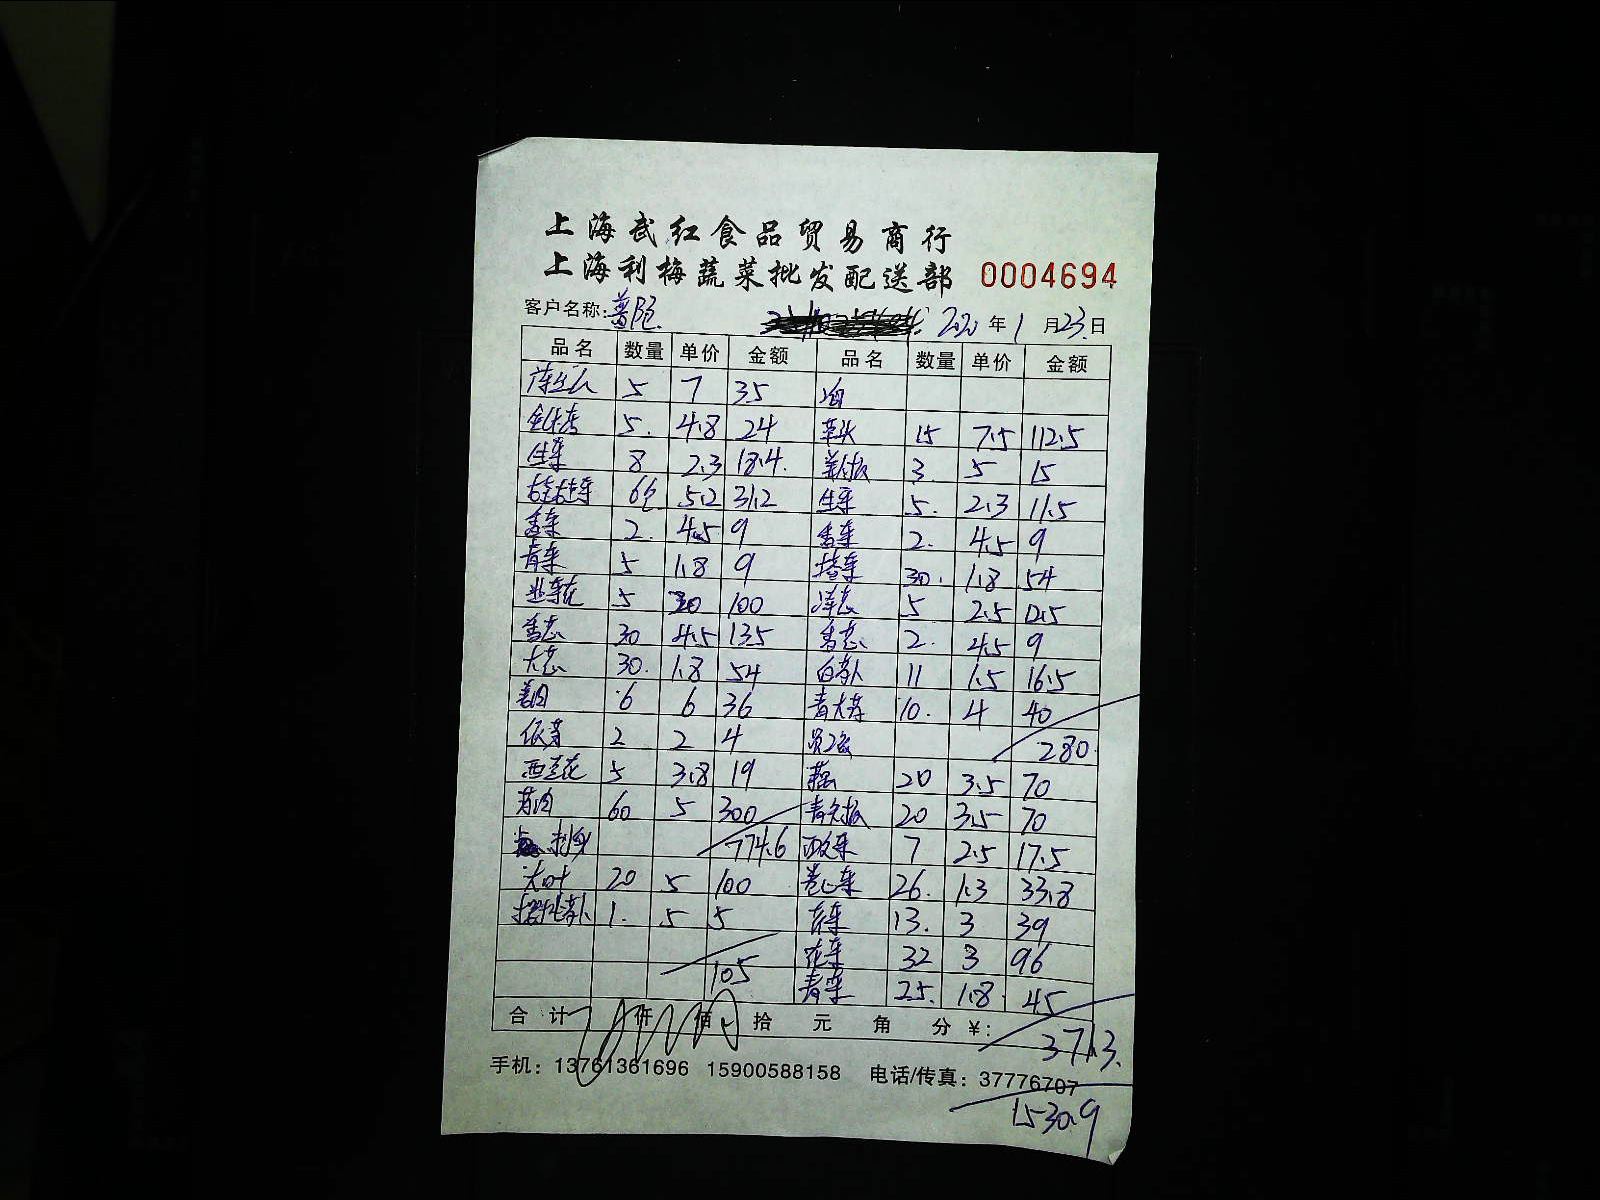 上海武红食品贸易商行
上海利梅蔬菜批发配送部 0004694
客户名称: 普陀 2020 年 1 月 23 日
品名 数量 单价 金额 品名 数量 单价 金额
5 7 35
5. 4.8 24 草头 15 7.5 112.5
生菜 8 2.3 18.4. 3. 5 15
5.2 31.2 生菜 5. 2.3 11.5
香菜 2. 4.5 9 香菜 2. 4.5 9
青菜 5 1.8 9 塔菜 30. 1.8 54
韭菜花 5 20 100 洋葱 5 2.5 12.5
香葱 30 4.5 135 香葱 2. 4.5 9
大葱 30. 1.8 54 白萝卜 11 1.5 16.5
姜肉 6 6 36 青大蒜 10. 4 40
2 2 4 280.
西兰花 5 3.8 19 藕 20 3.5 70
60 5 300 青尖椒 20 3.5 70
774.6 7 2.5 17.5
大叶 20 5 100 卷心菜 26. 1.3 33.8
萝卜 1. 5 5 13. 3 39
花菜 32 3 96
105 青菜 25. 1.8 45
合计 仟 佰 拾 元 角 分 ¥:
371.3.
手机: 13761361696 15900588158 电话/传真: 37776707
1530.9